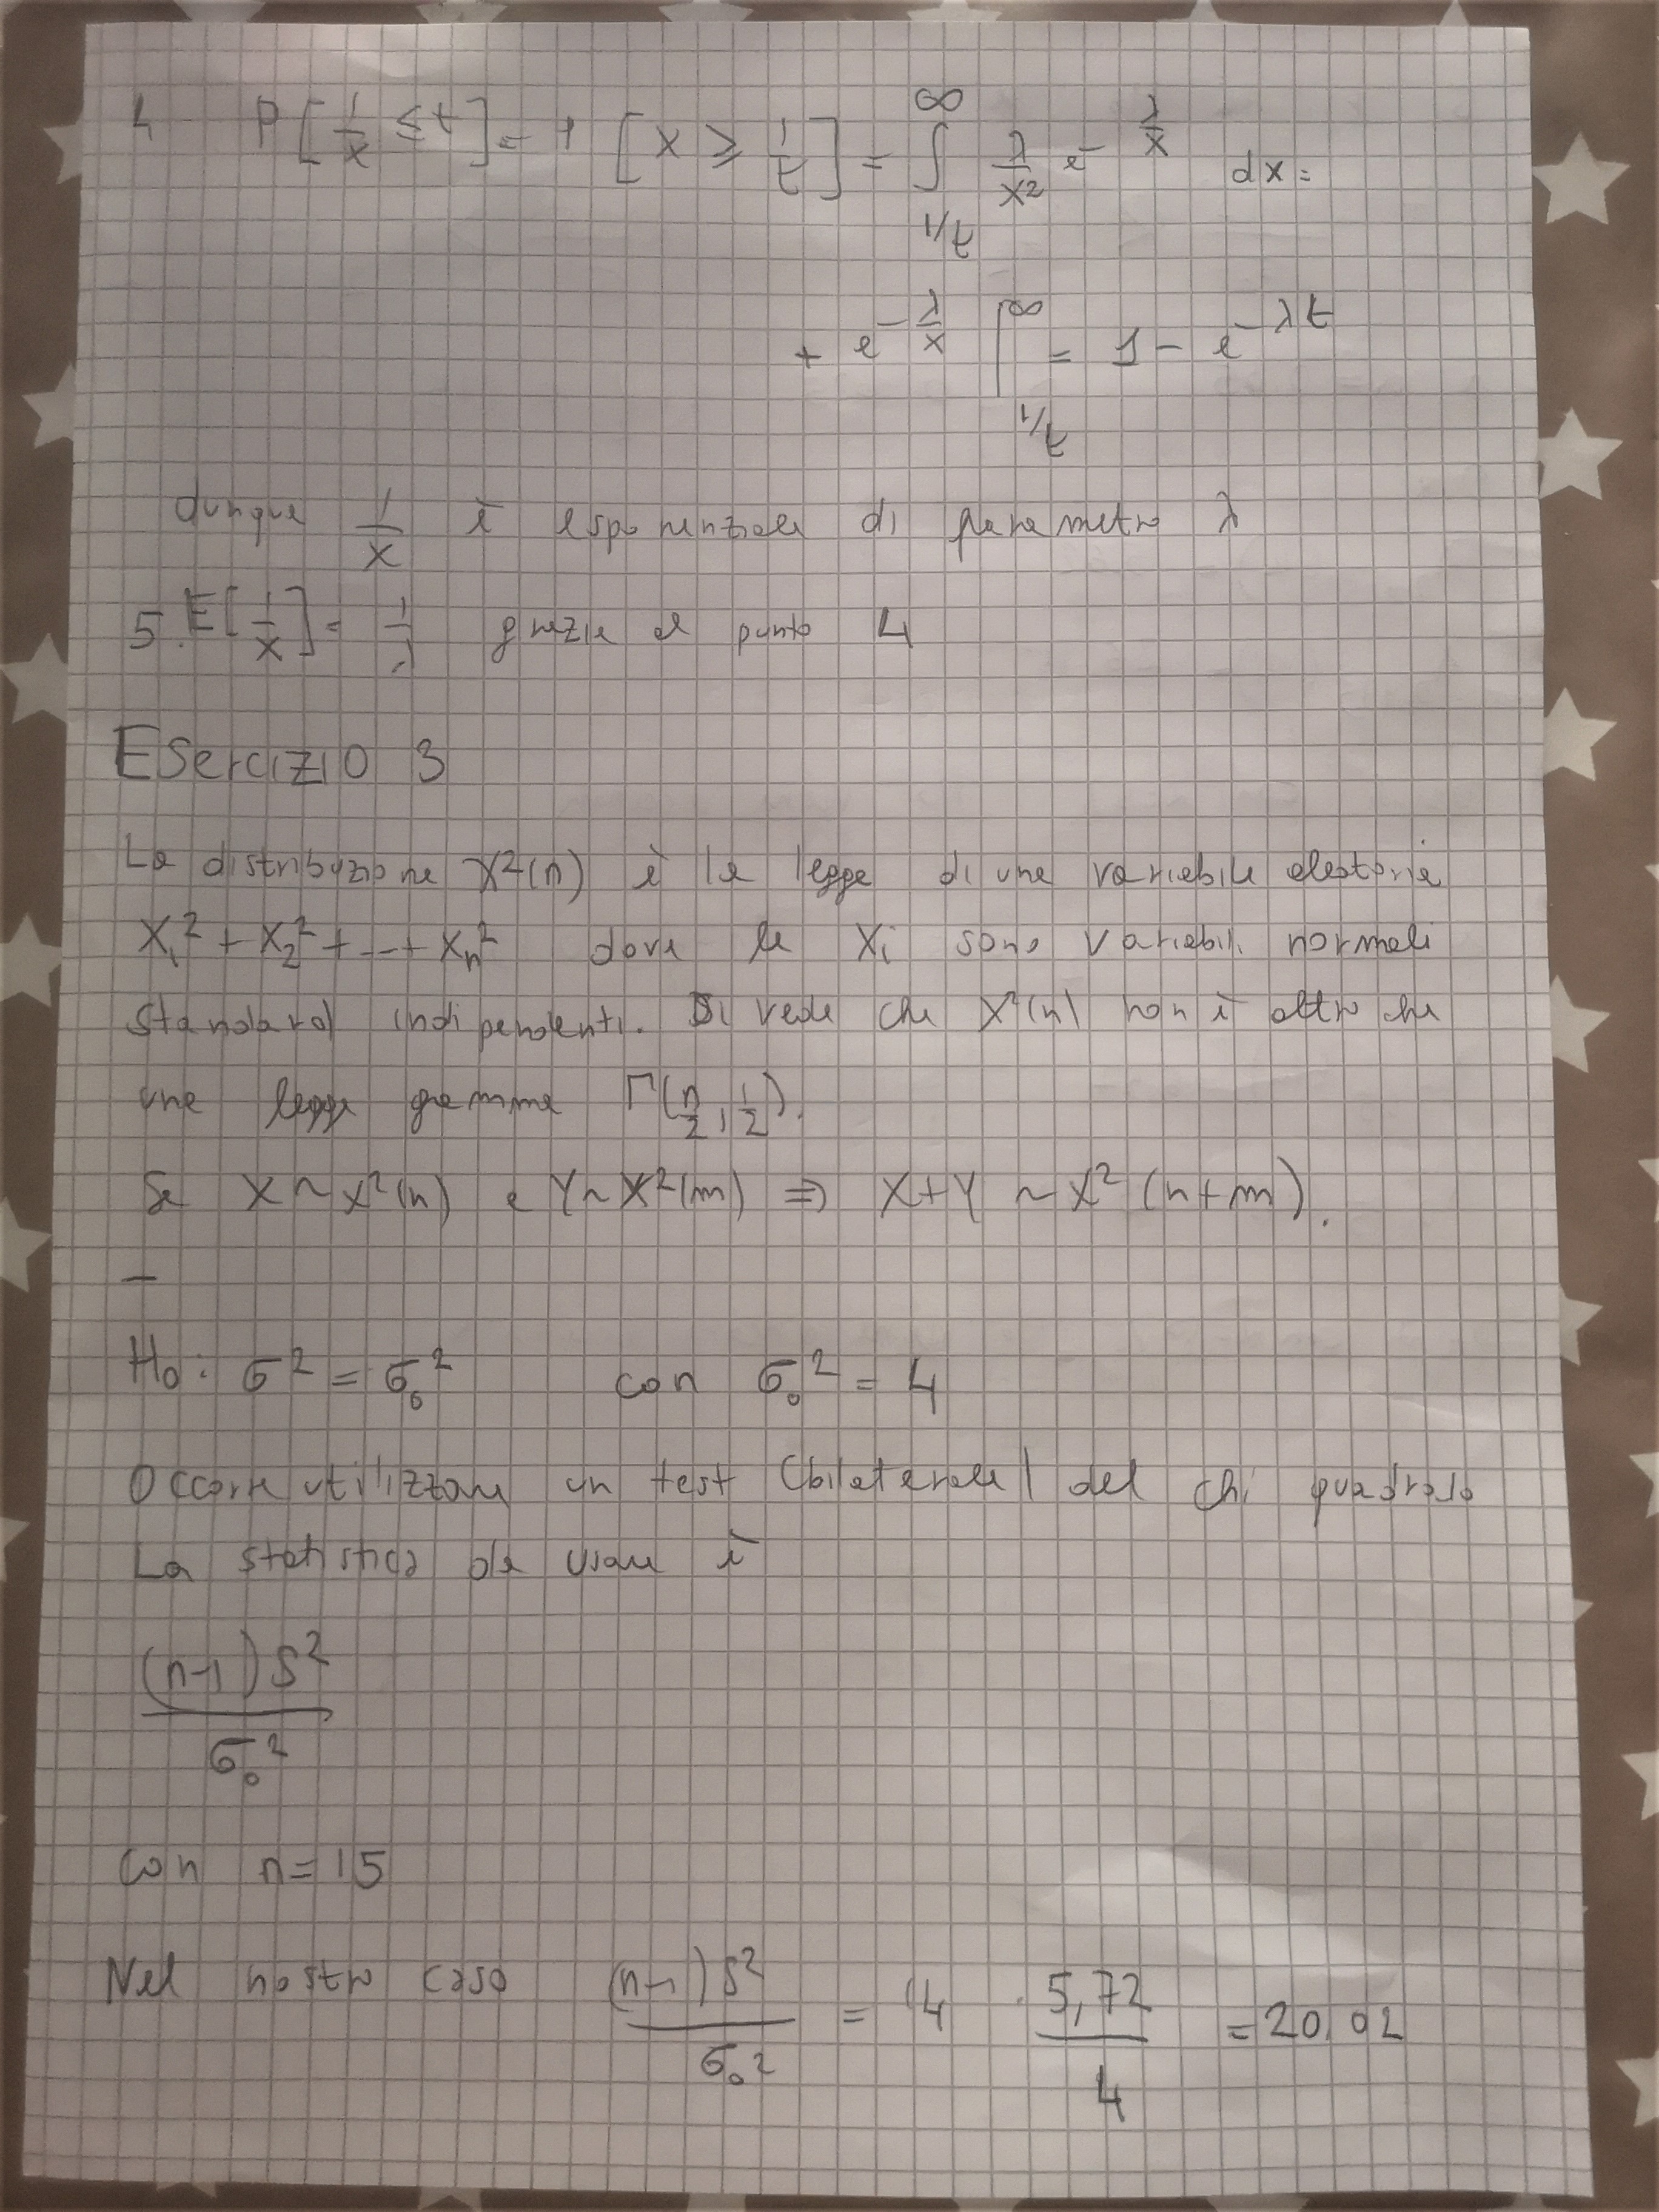 4 P[1/x ≤ t] = P[x ≥ 1/t] = ∫_{1/t}^{∞} λ/x² e^{-λ/x} dx =
+ e^{-λ/x} |_{1/t}^{∞} = 1 - e^{-λt}
dunque 1/x è esponenziale di parametro λ
5. E[1/x] = 1/λ grazie al punto 4
Esercizio 3
La distribuzione χ²(n) è la legge di una variabile aleatoria
X₁² + X₂² + ... + Xₙ² dove le Xi sono variabili normali
standard indipendenti. Si vede che χ²(n) non è altro che
una legge gamma Γ(n/2, 1/2).
Se X ~ χ²(n) e Y ~ χ²(m) ⇒ X+Y ~ χ²(n+m).
—
H₀: σ² = σ₀² con σ₀² = 4
Occorre utilizzare un test (bilaterale) del chi quadrato
La statistica da usare è
(n-1)S²/σ₀²
con n=15
Nel nostro caso (n-1)S²/σ₀² = 14 · 5,72/4 = 20,02